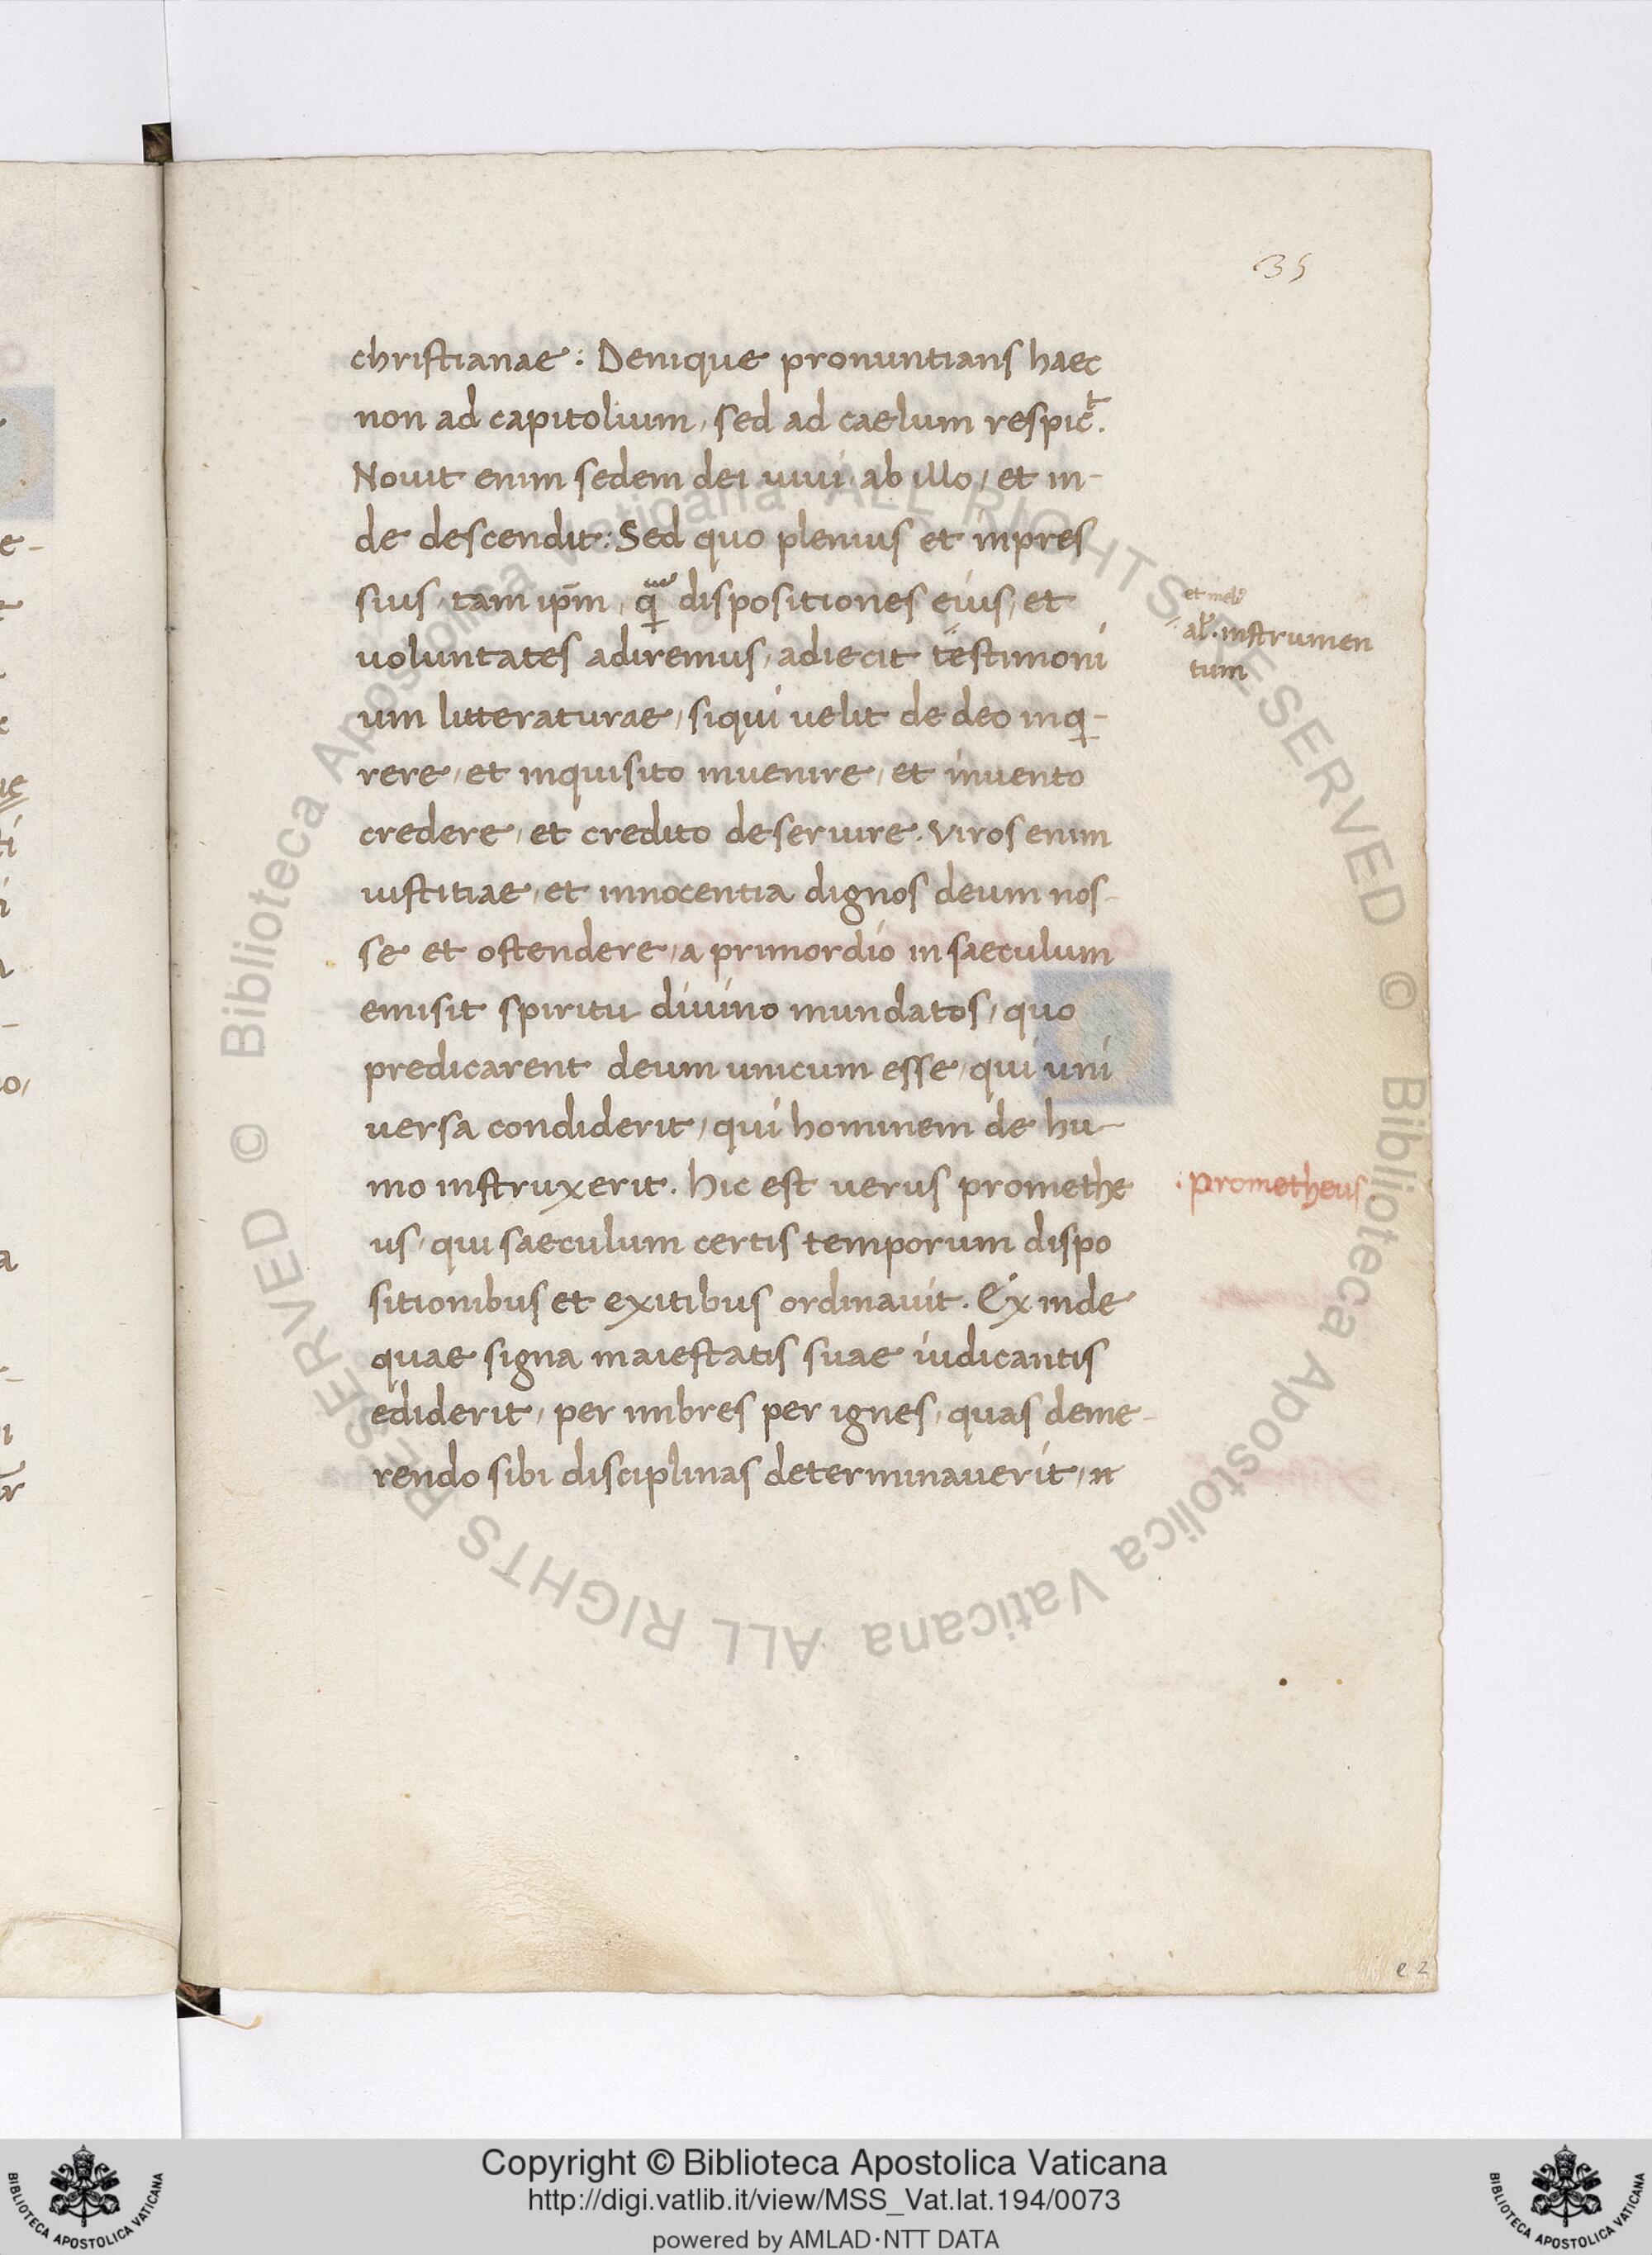 35
christianae: Denique pronuntians haec
non ad capitolium, sed ad caelum respicͭ.
Novit enim sedem dei vivi ab illo, et in-
de descendit: Sed quo plenius et inpres
sius, tam ip̄m, qͣ dispositiones eius, et
voluntates adiremus, adiecit testimoni
um litteraturae, siqui velit de deo inq-
rere, et inquisito invenire, et invento
credere, et credito deservire. Viros enim
iustitiae, et innocentia dignos deum nos-
se et ostendere, a primordio in saeculum
emisit spiritu divino mundatos, quo
predicarent deum unicum esse, qui uni
versa condiderit, qui hominem de hu-
mo instruxerit. hic est verus promethe
us, qui saeculum certis temporum dispo
sitionibus et exitibus ordinavit. Ex inde
quae signa maiestatis suae iudicantis
ediderit, per imbres per ignes, quas deme-
rendo sibi disciplinas determinaverit,
et meł
al. instrumen
tum
prometheus
e 2
© Biblioteca Apostolica Vaticana ALL RIGHTS RESERVED
© Biblioteca Apostolica Vaticana ALL RIGHTS RESERVED
BIBLIOTECA APOSTOLICA VATICANA
Copyright © Biblioteca Apostolica Vaticana
http://digi.vatlib.it/view/MSS_Vat.lat.194/0073
powered by AMLAD·NTT DATA
BIBLIOTECA APOSTOLICA VATICANA